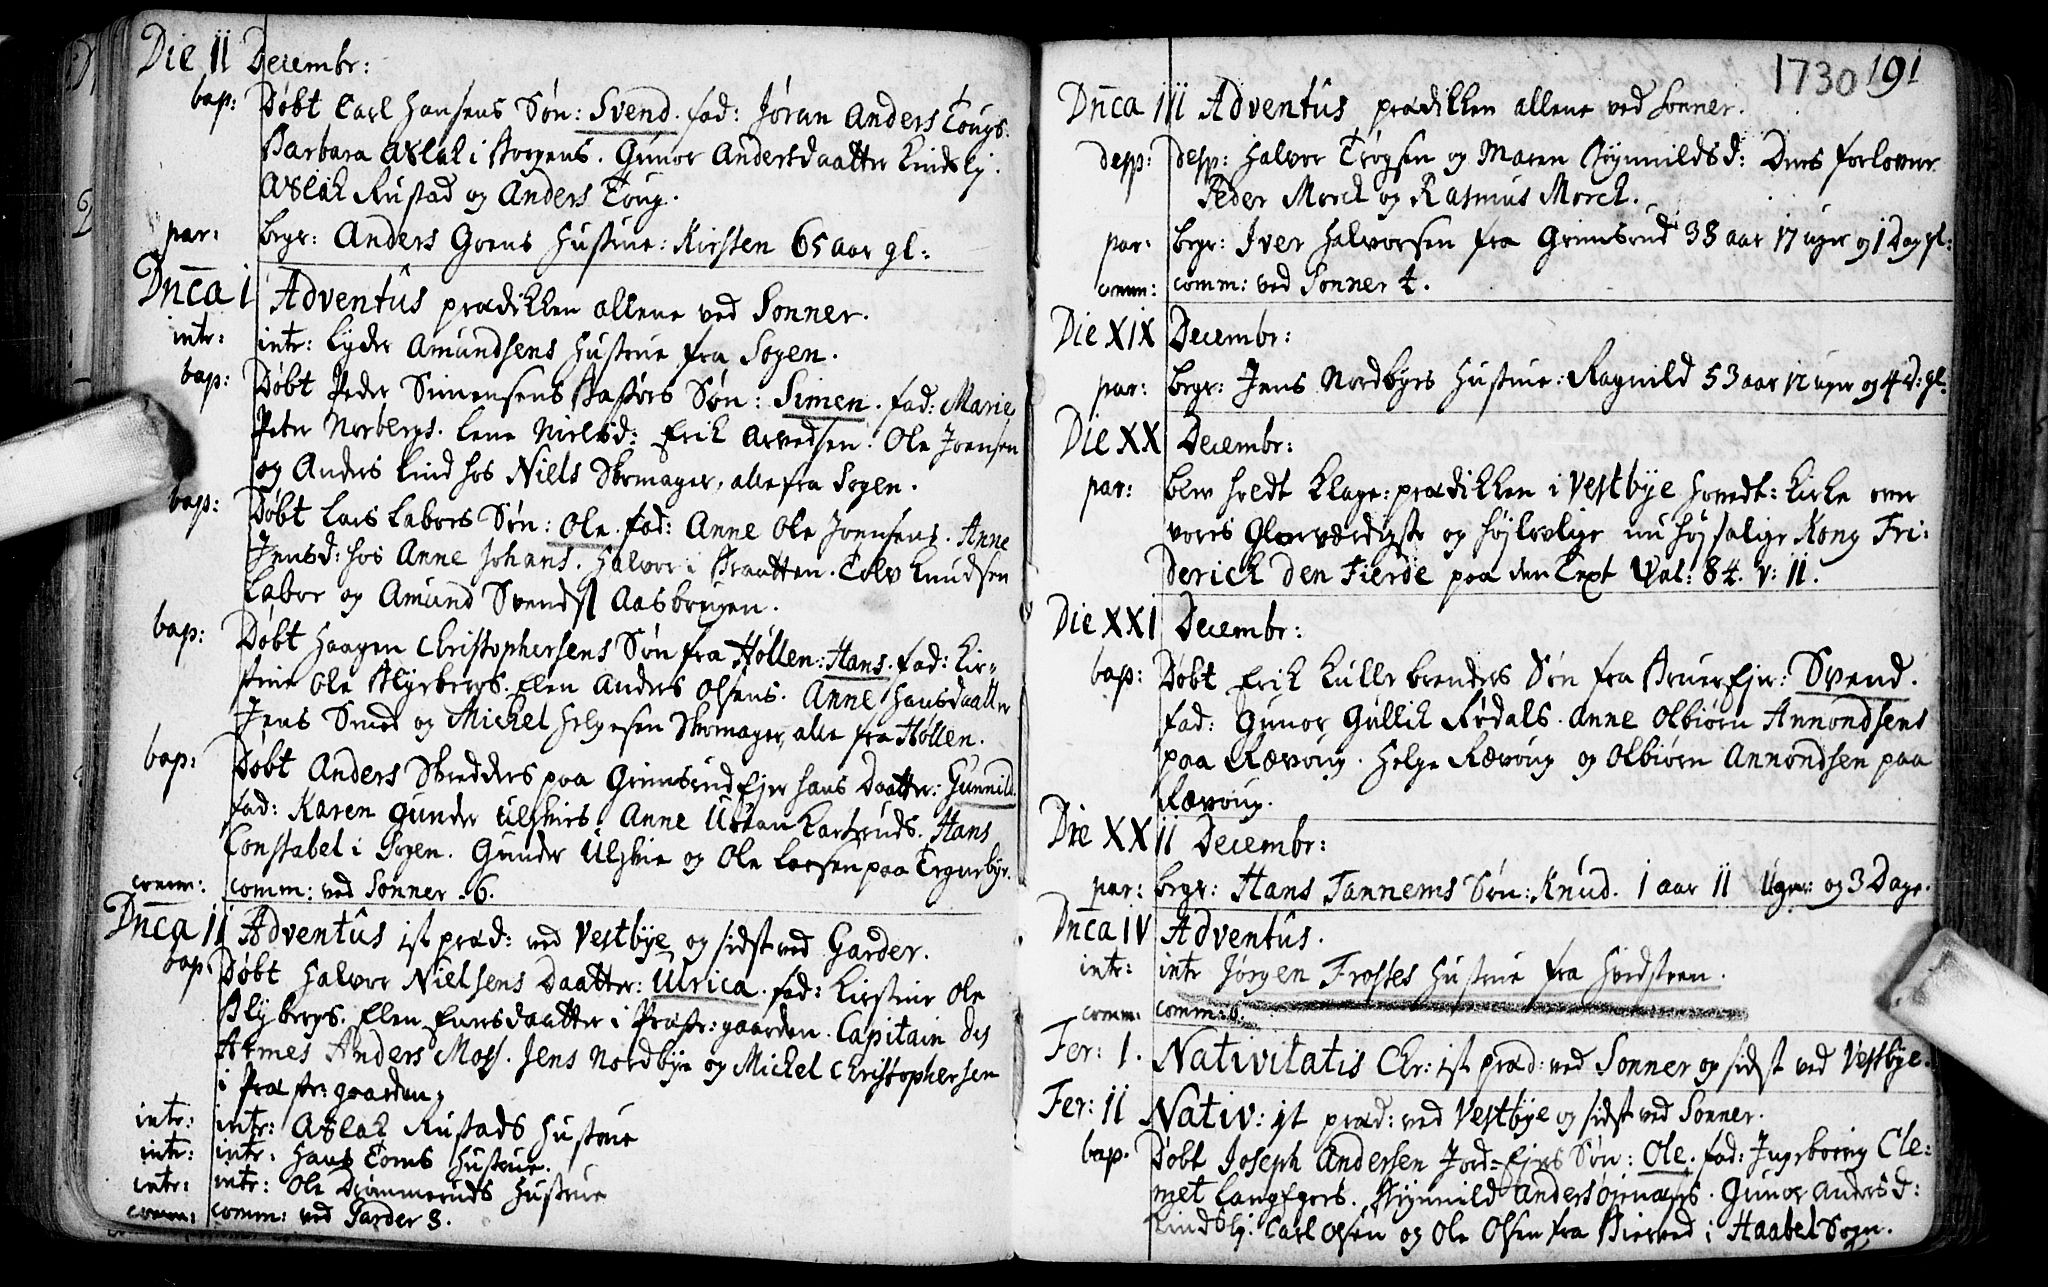 Die II Decembr:
bap: Døbt Carl Hansens Søn: Svend. fad: Jøran Anders Tougs.
Barbara Aslak i Borgens. Gunor Andersdaatter Lindsly.
Aslak Rustad og Anders Toug.
par: begr: Anders Goens Hustrue: Kirsten 65 aar gl:
Dn̅ca I Adventûs prædikken allene ved Sonner.
intr: intr: Lyder Amundsens Hustrue fra Sogen.
bap: Døbt Peder Simensens Søn: Simen. fad: Marie
Peter Norbergs. Lene Nielsd: Erik Arvedsen. Ole Joensen
og Anders Lind hos Niels Skomager, alle fra Sogen.
bap: Døbt Lars Labors Søn: Ole. fad: Anne Ole Joensens. Anne
Jensd: hos Anne Johans. Halvor i Braatten. Tolv Knudsen
Labor og Amund Svends Aasbregen.
bap: Døbt Haagen Christophersens Søn fra Høllen: Hans. fad: Kir-
stine Ole Blybergs. Elen Anders Olsens. Anne Hansdaatter
Jens Smed og Michel Helgesen Skomager, alle fra Høllen.
bap: Døbt Anders Skredders paa Grimsrud Ejer hans Daatter: Gunnild.
fad: Karen Gunder Ulskies. Anne Urban Karsruds. Hans
Constabel i Sogen. Gunder Ulskie og Ole Larsen paa Tegnebye.
comm: comm: ved Sonner. 6.
Dn̅ca II Adventûs 1st præd: ved Vestbye og sidst ved Garder.
bap. Døbt Halvor Nielsens Daatter: Ulrica. fad: Kirstine Ole
Blybergs. Elen Enersdaatter i Præste:gaarden. Capitain des
Armes Anders Moss. Jens Nordbye og Michel Christophersen
i Præste:gaarden.
intr: intr: Aslak Rustads Hustrue
intr: intr: Hans Torns Hustrue.
intr: intr: Ole Drommeruds Hustrue
comm: comm: ved Garder 8.
1730 191
Dn̅ca III Adventûs prædikken allene ved Sonner.
desp: desp: Halvor Trogsen og Maren Røynnildsd: Deres forlover
Peder Morck og Rasmus Morck.
par: begr: Iver Halvorsen fra Grimsrud 38 aar 17 uger og 1 Dag gl:
comm: comm: ved Sonner 4.
Die XIX Decembr:
par: begr: Jens Nordbyes Hustrue: Ragnild 53 aar 12 uger og 4 D: gl:
Die XX Decembr:
par: blev holdt klage:prædikken i Vestbye Hovedt:Kirke over
vores Glorværdigste og Højlovlige nu højsalige Kong Fri:
derich den Fierde paa den Text Psal: 84. v: 11.
Die XXI Decembr:
bap: Døbt Erik Kullebrenders Søn fra Ejer: Svend.
fad: Gunor Gullik Rødals. Anne Olbiørn Annondsens
paa Rævoug. Helge Rævoug og Olbiørn Annondsen paa
Rævoug.
Die XXII Decembr:
par: begr: Hans Tannems Søn: Knud. 1 aar 11 Uger: og 3 Dage.
Dn̅ca IV Adventûs.
intr: intr Jørgen Frosses Hustrue fra Hvidsteen.
comm. comm: 6.
Fer: I. Nativitatis Chr: 1st præd: ved Sonner og sidst ved Vestbye.
Fer: II Nativ: 1st præd: ved Vestbye og sidst ved Sonner.
bap. Døbt Joseph Andersen Jord=Ejes Søn: Ole. fad: Ingeborig Cle:
met Langegers. Røynnild Anders. Gunor Andersd:
Lindsly. Carl Olsen og Ole Olsen fra Bierved i Haabel Sogn.